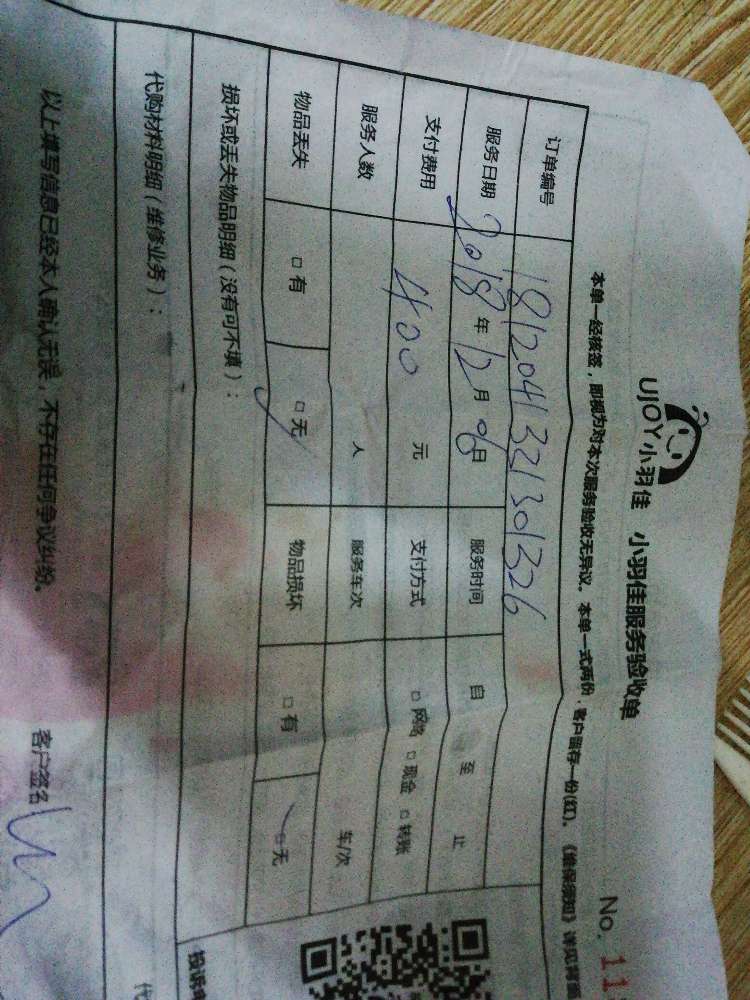 UJOY小羽佳 小羽佳服务验收单
No. 11
本单一经核签，即视为对本次服务验收无异议。本单一式两份，客户留存一份(红)。《维保须知》详见背面
订单编号 1812041321301326
服务日期 2018年12月06日 服务时间 自 至 止
支付费用 400 元 支付方式 □网络 □现金 □转账
服务人数 人 服务车次 车/次
物品丢失 □有 □无 物品损坏 □有 □无
损坏或丢失物品明细（没有可不填）：
代购材料明细（维修业务）：
投诉
代
以上填写信息已经本人确认无误，不存在任何争议纠纷。
客户签名